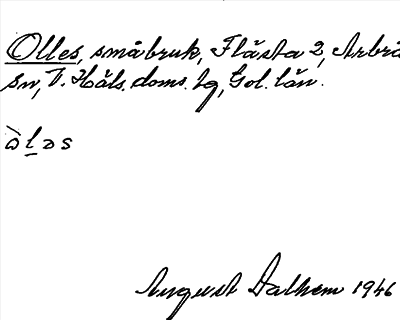 Olles, småbruk, Flästa 2, Arbrå
sn, V. Häls. doms. tg, Gol. län.
òl̲ɔs
August Dalhem 1946